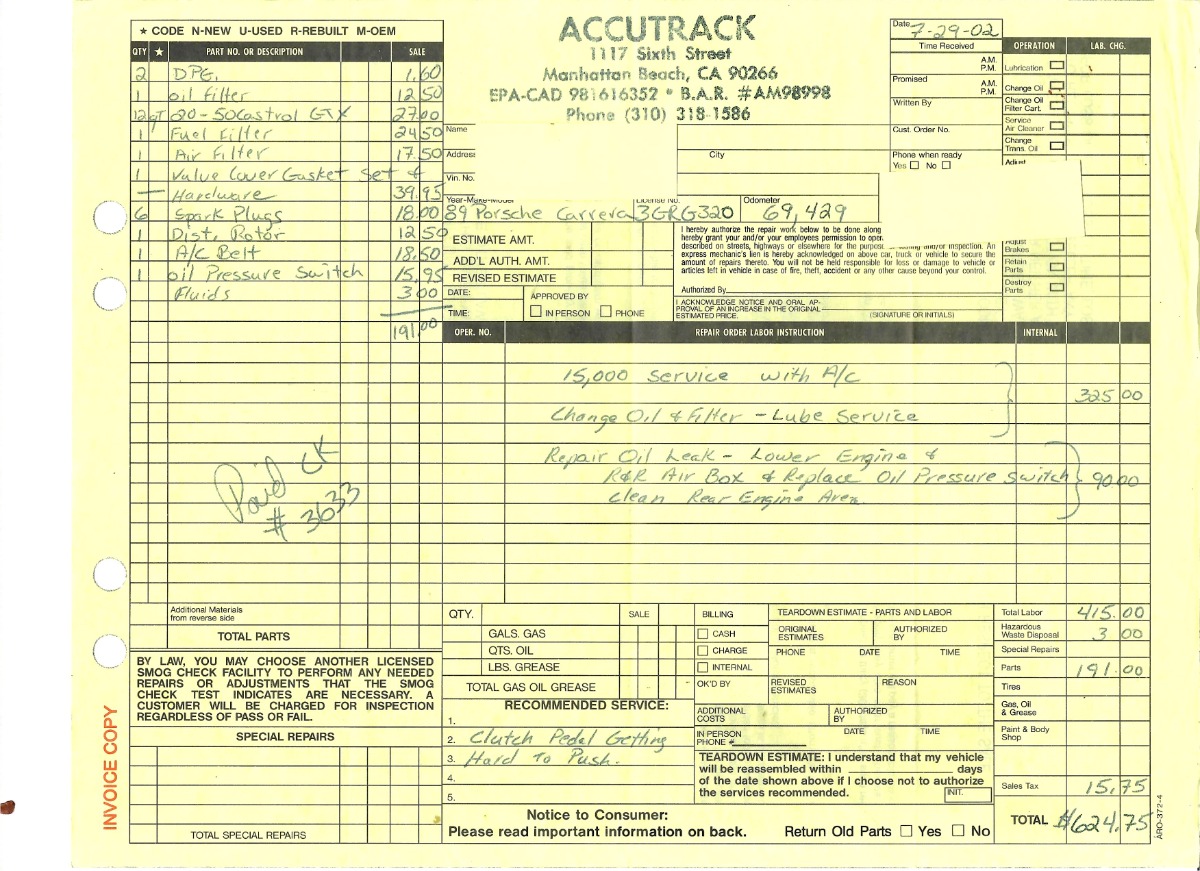 ★ CODE N-NEW U-USED R-REBUILT M-OEM
QTY ★ PART NO. OR DESCRIPTION SALE
2 DPG. 1.60
1 oil filter 12 50
12 QT 20-50 Castrol GTX 27.00
1 Fuel Filter 24 50
1 Air Filter 17.50
1 Valve Cover Gasket Set &
— Hardware 39.95
6 Spark Plugs 18.00
1 Dist. Rotor 12 50
1 A/C Belt 18.50
1 oil Pressure Switch 15.95
Fluids 3 00
191.00
Paid CK
# 3633
Additional Materials
from reverse side
TOTAL PARTS
BY LAW, YOU MAY CHOOSE ANOTHER LICENSED
SMOG CHECK FACILITY TO PERFORM ANY NEEDED
REPAIRS OR ADJUSTMENTS THAT THE SMOG
CHECK TEST INDICATES ARE NECESSARY. A
CUSTOMER WILL BE CHARGED FOR INSPECTION
REGARDLESS OF PASS OR FAIL.
SPECIAL REPAIRS
TOTAL SPECIAL REPAIRS
INVOICE COPY
ACCUTRACK
1117 Sixth Street
Manhattan Beach, CA 90266
EPA-CAD 981616352 * B.A.R. #AM98998
Phone (310) 318-1586
Name
Address
City
Vin. No.
Year-Make-Model License No. Odometer
89 Porsche Carrera 3GRG320 69,429
Date 7-29-02
Time Received
A.M.
P.M.
Promised A.M.
P.M.
Written By
Cust. Order No.
Phone when ready
Yes No
OPERATION LAB. CHG.
Lubrication
Change Oil
Change Oil
Filter Cart.
Service
Air Cleaner
Change
Trans. Oil
Adjust
Brakes
Retain
Parts
Destroy
Parts
ESTIMATE AMT.
ADD'L AUTH. AMT.
REVISED ESTIMATE
DATE: APPROVED BY
TIME: IN PERSON PHONE
I hereby authorize the repair work below to be done along
hereby grant your and/or your employees permission to
described on streets, highways or elsewhere for the purpose and/or inspection. An
express mechanic's lien is hereby acknowledged on above car, truck or vehicle to secure the
amount of repairs thereto. You will not be held responsible for loss or damage to vehicle or
articles left in vehicle in case of fire, theft, accident or any other cause beyond your control.
Authorized By
I ACKNOWLEDGE NOTICE AND ORAL AP-
PROVAL OF AN INCREASE IN THE ORIGINAL
ESTIMATED PRICE. (SIGNATURE OR INITIALS)
OPER. NO. REPAIR ORDER LABOR INSTRUCTION INTERNAL
15,000 Service with A/C
325 00
Change Oil & Filter - Lube Service
Repair Oil Leak - Lower Engine &
R&R Air Box & Replace Oil Pressure Switch 90.00
Clean Rear Engine Area.
QTY. SALE
GALS. GAS
QTS. OIL
LBS. GREASE
TOTAL GAS OIL GREASE
RECOMMENDED SERVICE:
1.
2. Clutch Pedal Getting
3. Hard To Push.
4.
5.
BILLING
CASH
CHARGE
INTERNAL
OK'D BY
ADDITIONAL
COSTS
IN PERSON
PHONE #
TEARDOWN ESTIMATE - PARTS AND LABOR
ORIGINAL
ESTIMATES
AUTHORIZED
BY
PHONE DATE TIME
REVISED
ESTIMATES
REASON
AUTHORIZED
BY
DATE TIME
TEARDOWN ESTIMATE: I understand that my vehicle
will be reassembled within days
of the date shown above if I choose not to authorize
the services recommended. INIT.
Notice to Consumer:
Please read important information on back. Return Old Parts Yes No
Total Labor 415.00
Hazardous
Waste Disposal 3 00
Special Repairs
Parts 191.00
Tires
Gas, Oil
& Grease
Paint & Body
Shop
Sales Tax 15.75
TOTAL $624.75
ARO-372-4